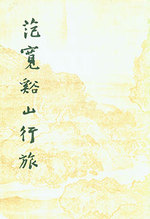 范寬谿山行旅